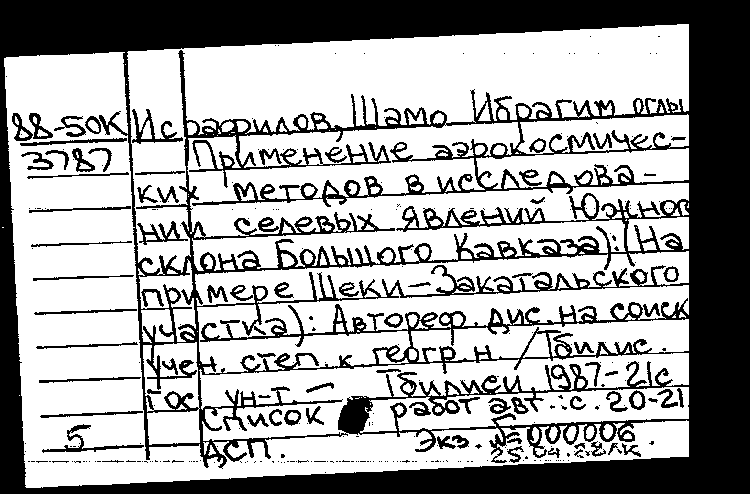 88-50К Исрафилов, Шамо Ибрагим оглы
3787 Применение аэрокосмичес-
ких методов в исследова-
нии селевых явлений Южног
склона Большого Кавказа):(На
примере Шеки-Закатальского
участка): Автореф. дис. на соиск
учен. степ. к геогр. н. / Тбилис.
гос ун-т. — Тбилиси, 1987.-21с
Список работ авт.: с. 20-21
5 ДСП. Экз. №000006.
25.04.88